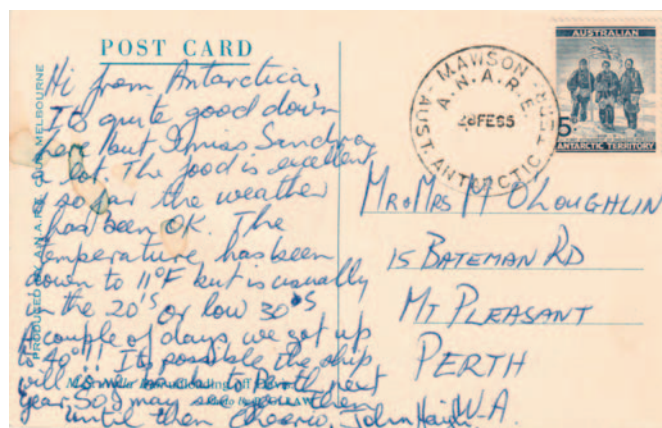 POST CARD
Hi from Antarctica,
Its quite good down
here but I miss Sandra
a lot. The food is excellent
& so far the weather
has been OK. The
temperature has been
down to 11°F but is usually
in the 20's or low 30's
A couple of days we got up
to 40°!! Its possible the ship
will come back to Perth next
year. So I may see you then
until then Cheerio, John Haigh.
PRODUCED BY A.N.A.R.E. CLUB, MELBOURNE
unloading off
MAWSON
A.N.A.R.E.
28FE65
AUST. ANTARCTIC TERR
AUSTRALIAN
5
ANTARCTIC TERRITORY
MR & MRS M O'LOUGHLIN
15 BATEMAN RD
MT PLEASANT
PERTH
W.A.